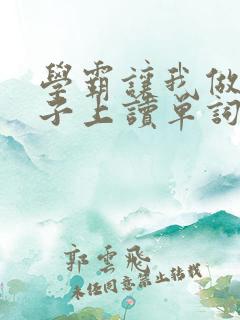 學霸讓我做
子上讀單詞
郭雲飛
未經同意禁止轉載